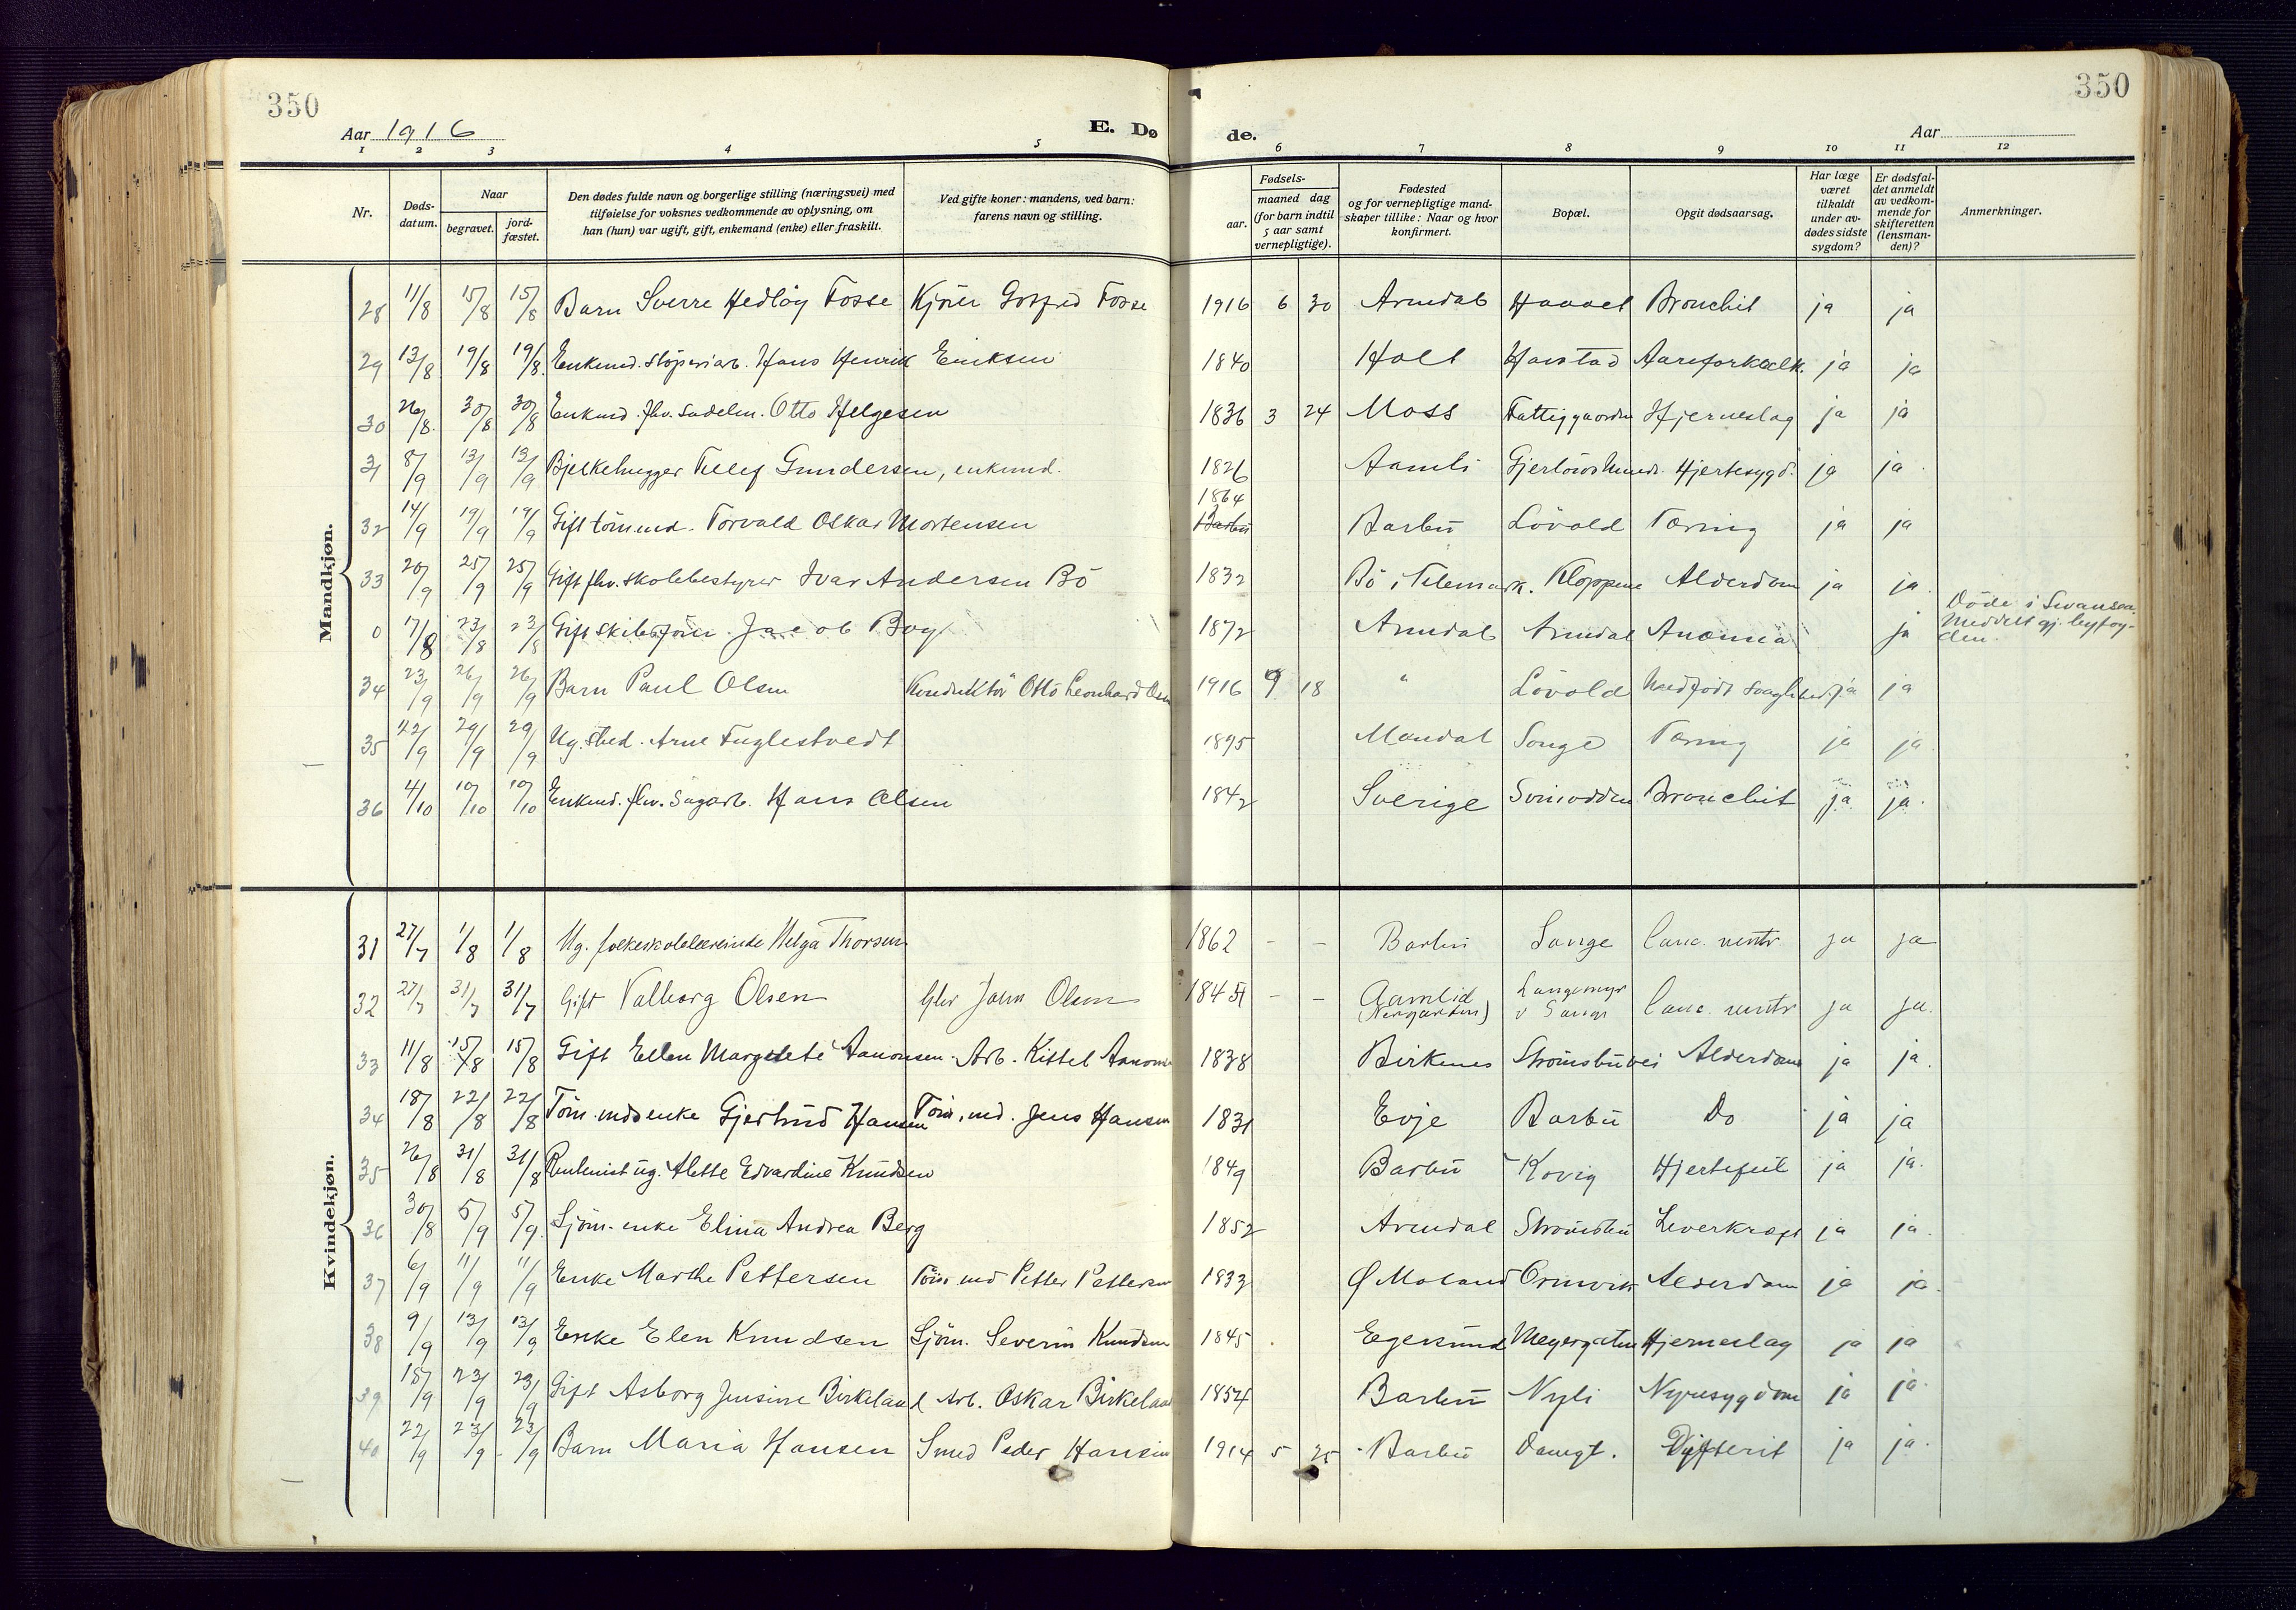 350
350
Aar 1916
E. Dø
de.
Aar
1 2 3 4 5 6 7 8 9 10 11 12
Nr.
Døds-datum.
Naar
begravet.
jord-fæstet.
Den dødes fulde navn og borgerlige stilling (næringsvei) med
tilføielse for voksnes vedkommende av oplysning, om
han (hun) var ugift, gift, enkemand (enke) eller fraskilt.
Ved gifte koner: mandens, ved barn:
farens navn og stilling.
Fødsels-
aar.
maaned dag
(for barn indtil
5 aar samt
vernepligtige).
Fødested
og for vernepligtige mand-
skaper tillike: Naar og hvor
konfirmert.
Bopæl.
Opgit dødsaarsag.
Har læge
været
tilkaldt
under av-
dødes sidste
sygdom?
Er dødsfal-
det anmeldt
av vedkom-
mende for
skifteretten
(lensman-
den)?
Anmerkninger.
Mandkjøn.
28 11/8 15/8 15/8 Barn Sverre Hedløy Fosse Kjører Gotfred Fosse 1916 6 30 Arendal Bronchit ja ja
29 13/8 19/8 19/8 Enkmd. støperiarb. Hans Henrik Eriksen 1840 Holt Harstad Aareforkalk. ja ja
30 26/8 30/8 30/8 Enkmd. fhv. sadelm. Otto Helgesen 1836 3 24 Moss Fattiggaarden Hjerneslag ja ja
31 8/9 13/9 13/9 Bjelkehugger Tellef Gundersen, enkmd. 1826 Aamli Hjertesygd. ja ja
32 14/9 19/9 19/9 Gift tøm.md. Torvald Oskar Mortensen 1864 Barbu Løvold Tæring ja ja
33 20/9 25/9 25/9 Gift fhv. skolebestyrer Ivar Andersen Bö 1832 Bö i Telemark. Kloppene Alderdom ja ja
0 17/8 23/8 23/8 Gift skibstøm. Jacob Boy 1872 Arendal Arendal Anæmia ja Døde i Swansea.
34 23/9 26/9 26/9 Barn Paul Olsen Konduktør Otto Leonhard Olsen 1916 9 18 " Løvold Medfødt svaghed. ja ja
35 22/9 29/9 29/9 Ug. stud. Arne Fuglestvedt 1895 Mandal Songe Tæring ja ja
36 4/10 10/10 10/10 Enkmd. fhv. sagarb. Hans Olsen 1842 Sverige Svinodden Bronchit ja ja.
Kvindekjøn.
31 27/7 1/8 1/8 Ug. folkeskolelærerinde Helga Thorsen 1862 - - Barbu Songe Canc. ventr. ja ja
32 27/7 31/7 31/7 Gift Valborg Olsen Olsen 1845 - - Aamlid Langemyr v Songe Canc. ventr ja ja.
33 11/8 15/8 15/8 Gift Ellen Margrete Aanonsen. Arb. Kittel Aanonsen 1838 Birkenes Strømsbuvei Alderdom ja ja.
34 18/8 22/8 22/8 Tøm.mdsenke Gjertrud Hansen Tøm.md. Jens Hansen 1831 Evje Barbu Do ja ja
35 26/8 31/8 31/8 Rentenist ug. Alette Edvardine Knudsen 1849 Barbu Kovig Hjertefeil ja ja.
36 30/8 5/9 5/9 Sjøm.enke Elina Andrea Berg 1852 Arendal Strømsbu Leverkræft ja ja.
37 6/9 11/9 11/9 Enke Marthe Pettersen Tøm.md Petter Pettersen 1833 Ø Moland Alderdom ja ja.
38 9/9 13/9 13/9 Enke Elen Knudsen Sjøm. Severin Knudsen 1845 Egersund Meyergaten Hjerneslag ja ja
39 18/9 23/9 23/9 Gift Asborg Jensine Birkeland Arb. Oskar Birkeland 1854 Barbu Nyli Nyresygdom ja ja.
40 22/9 23/9 23/9 Barn Maria Hansen Smed Peder Hansen 1914 5 25 Barbu Damgt. Dyfterit ja ja.